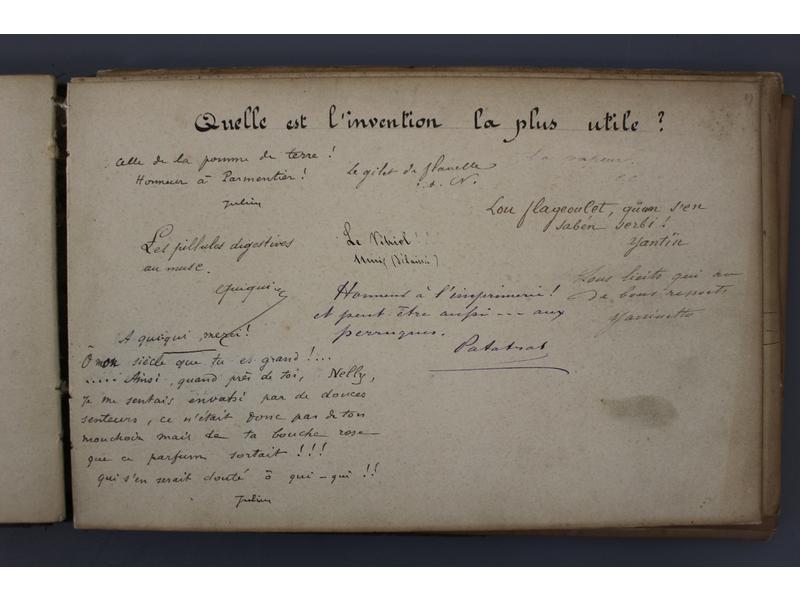 Quelle est l'invention la plus utile ?
Celle de la pomme de terre !
Honneur à Parmentier !
Julien
Le gilet de flanelle
N.
La vapeur.
Lou flageoulet, quan s'en
saben serbi !
Yantin
Les pillules digestives
au musc.
Quiqui
Le Vitriol ! ! !
Lous lieits qui an
de bous ressorts
Honneur à l'imprimerie !
et peut être aussi ... aux
perruques.
Patatrat
A quiqui, merci !
Ô mon siècle que tu es grand ! ...
..... Ainsi, quand près de toi, Nelly,
Je me sentais envahi par de douces
senteurs, ce n'était donc pas de ton
mouchoir mais de ta bouche rose
que ce parfum sortait ! ! !
qui s'en serait douté ô qui-qui ! !
Julien